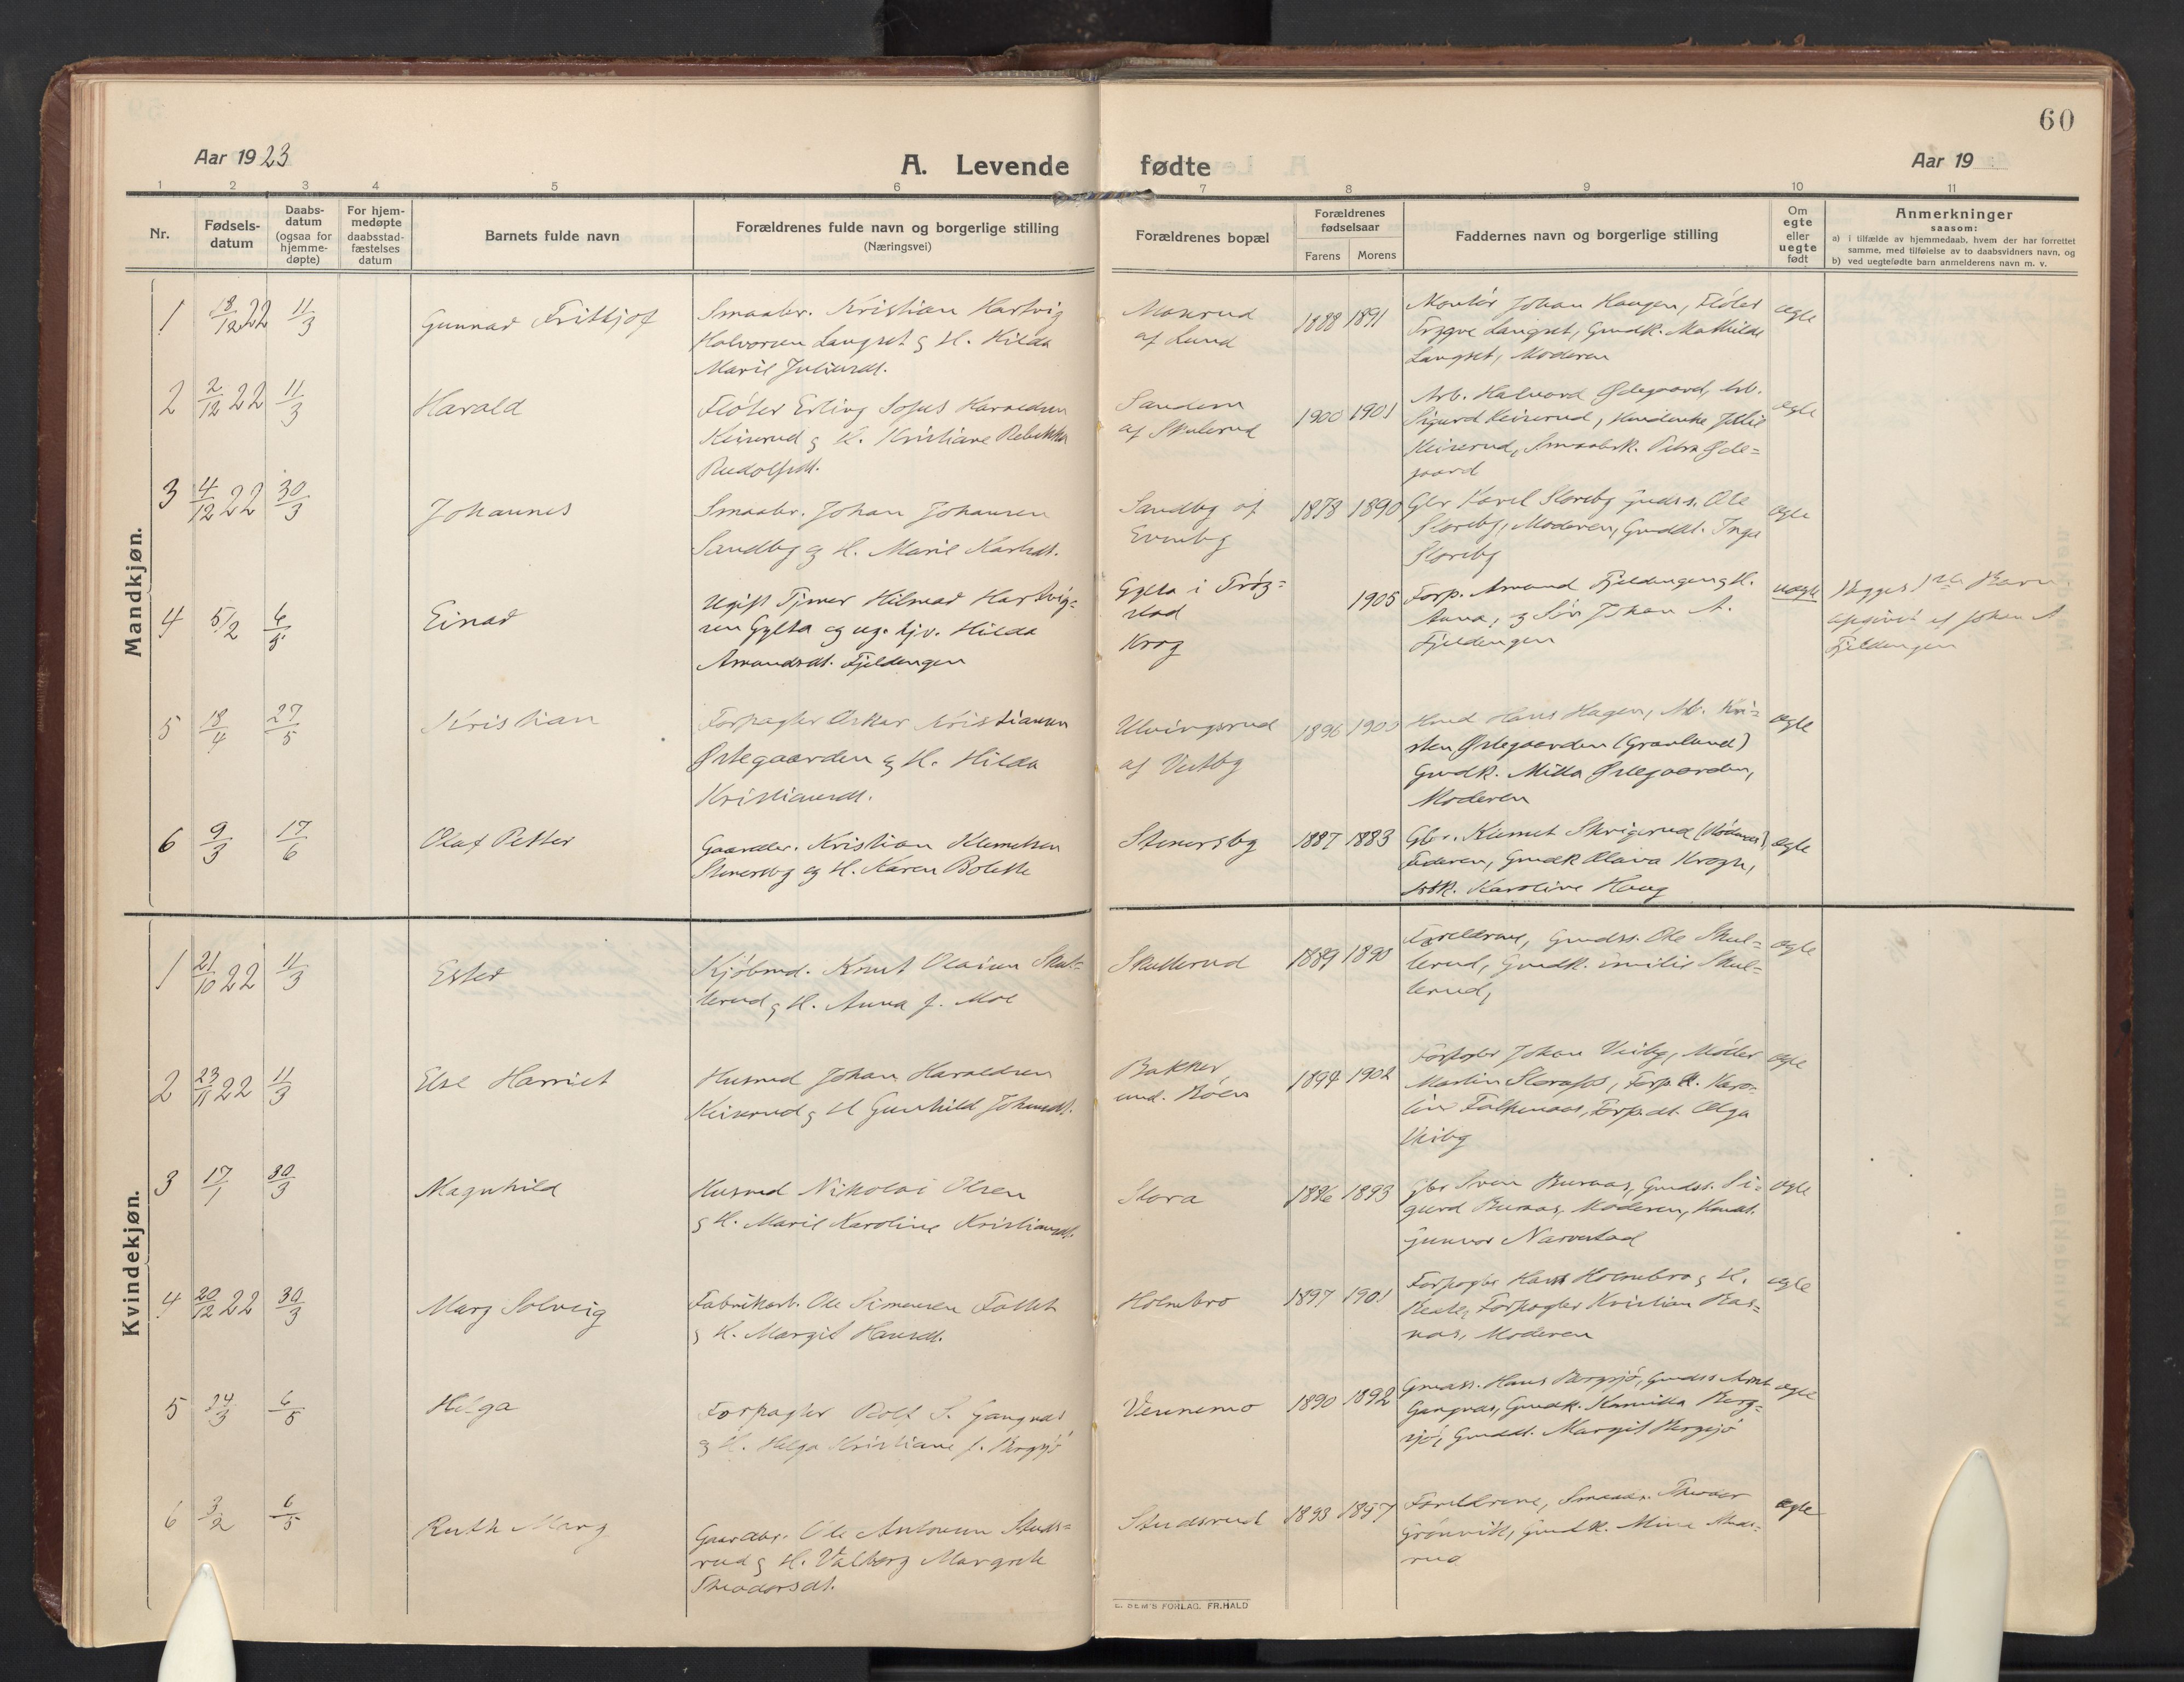 60
Aar 1923
A. Levende
fødte
Aar 19
1 2 3 4 5 6 7 8 9 10 11
Nr.
Fødsels-
datum
Daabs-
datum
(ogsaa for
hjemme-
døpte)
For hjem-
medøpte
daabsstad-
fæstelses
datum
Barnets fulde navn
Forældrenes fulde navn og borgerlige stilling
(Næringsvei)
Forældrenes bopæl
Forældrenes
fødselsaar
Farens Morens
Faddernes navn og borgerlige stilling
Om
egte
eller
uegte
født
Anmerkninger
saasom:
a) i tilfælde av hjemmedaab, hvem der har forrettet
samme, med tilføielse av to daabsvidners navn, og
b) ved uegtefødte barn anmelderens navn m. v.
Mandkjøn.
1 18/12 22 11/3
Gunnar Frithjof
Smaabr. Kristian Hartvig
Halvorsen Langset & H. Hilda
Marie Juliusdt.
af Lund
1888 1891
Montør Johan Haugen, Fløter
Trygve Langset, Gmdk. Mathilde
Langset, Moderen
egte
2 2/12 22 11/3
Harald
Fløter Erling Sofus Haraldsen
Keiserud & H. Kristiane Rebekka
Rudolfsdt.
Sandem
af Skulerud
1900 1901
Arb. Halvord Ødegaard, Arb.
Sigurd Keiserud,
Keiserud, Smaabrk. Petra Øde=
gaard
egte
3 4/12 22 30/3
Johannes
Smaabr. Johan Johansen
Sandbg og H. Marie Karlsdt.
Sandbg af
Evenbg
1878 1890
Gbr Karel Storebg Gmdss. Ole
Storebg, Moderen, Gmddt. Inga
Storebg
egte
4 5/2 6/5
Einar
Ugift Tjener Hilmar Hartvig=
sen Gylta og ug. tjv. Hilda
Amandsdt. Fjeldengen
Gylta i Trøg=
stad
Krog
1905
Forp. Amund Fjeldengen & H.
Anna, & Søn Johan A.
Fjeldengen
uegte
Begges 1ste Barn
opgivet af Johan A
Fjeldengen
5 18/4 27/5
Kristian
Forpagter Oskar Kristiansen
Østegaarden & H. Hilda
Kristiansdt.
Ulvingsrud
af Vestbg
1896
Hmd Hans Hagen, Arb. Kri=
sten Østegaarden (Grønlund)
Gmdk. Milla Østegaarden,
Moderen
egte
6 9/3 17/6
Olaf Petter
Gaardbr. Kristian Klemetsen
Stenersbg og H. Karen Bolette
Stenersbg
1887 1883
Gbr. Klemet Skrigerud (Rødenes)
Faderen, Gmdk Olava Krogh,
Karoline Haug
egte
Kvindekjøn.
1 21/10 22 11/3
Ester
Kjøbmd. Knut Olaisen Skul=
lerud & H. Anna f. Moe
Skullerud
1889 1890
Forældrene, Gmdss. Ole Skul=
lerud, Gmdk. Emilie Skul=
lerud,
egte
2 23/11 22 11/3
Else Harriet
Husmd Johan Haraldsen
Keiserud & H Gunhild Johansdt.
Bakker
und. Bøen
1894 1902
Forpagter Johan Viibg, Møller
Martin Storafos, Forp. K. Karo=
line Falkenaas, Forp.dt. Olga
Viibg
egte
3 17/1 30/3
Magnhild
Husmd Nikolai Olsen
& H. Marie Karoline Kristiansdt.
Stora
1886 1893
Gbr Svein Buraas, Gmdss. Si=
gurd Buraas, Moderen, Hmdt.
Gunvor Narvestad
egte
4 20/12 22 30/3
Marg Solveig
Fabrikarb. Ole Simensen Tollet
& H. Margit Hansdt.
Holmbro
1897 1901
Forpagter Hans Holmebro & H.
Beate, Forpagter Kristian Bas=
nas, Moderen
egte
5 24/3 6/5
Helga
Forpagter Rolf S. Gangnes
& H. Helga Kristiane f. Bergsjø
Vennemo
1890 1892
Gmdss. Hans Bergsjø, Gmdss Arnt
Gangnes, Gmdk. Kamilla Berg=
sjø, Gmddt. Margit Bergsjø
egte
6 3/2 6/5
Ruth Marg
Gaardbr. Ole Antonsen Studs=
rud & H. Valborg Margrete
Theodorsdt.
Studsrud
1893 1897
Forældrene, Smaabr. Theodor
Grønvik, Gmdk. Mina Studs=
rud
egte
E. SEM'S FORLAG. FR.HALD